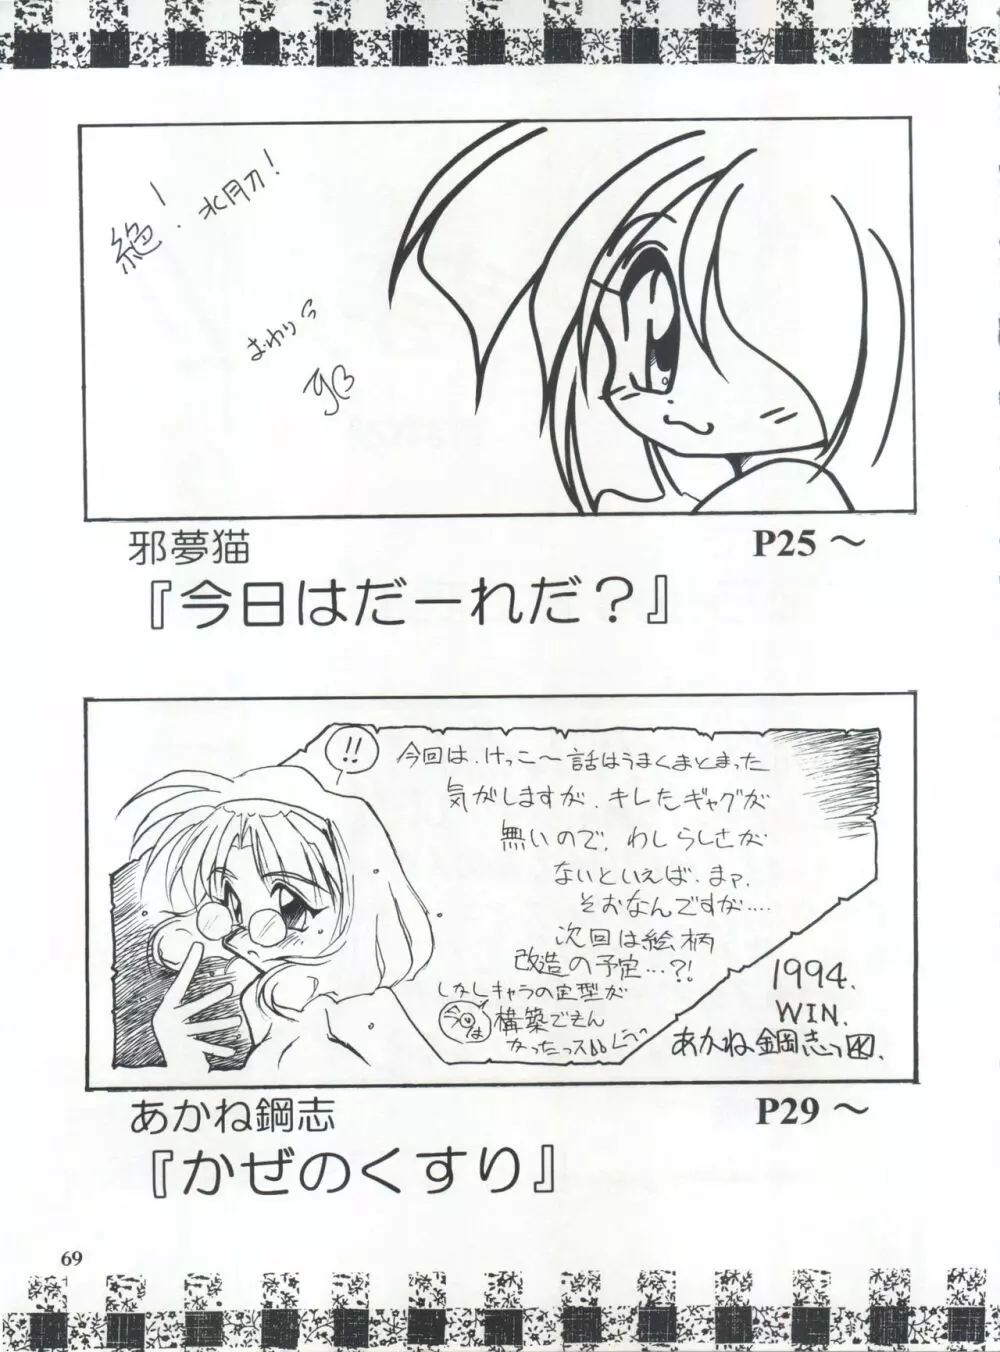 絶!氷月刀!
おわり
邪夢猫
P25 ~
『今日はだーれだ?』
!!
今回は、けっこ~話はうまくまとまった
気がしますが、キレたギャグが
無いので、わしらしさが
ないといえば、まァ、
そおなんですが....
次回は絵柄
改造の予定...?!
しかしキャラの定型が
今回は
構築できん
かったっス
1994.
WIN.
あかね鋼志
あかね鋼志
P29 ~
『かぜのくすり』
69